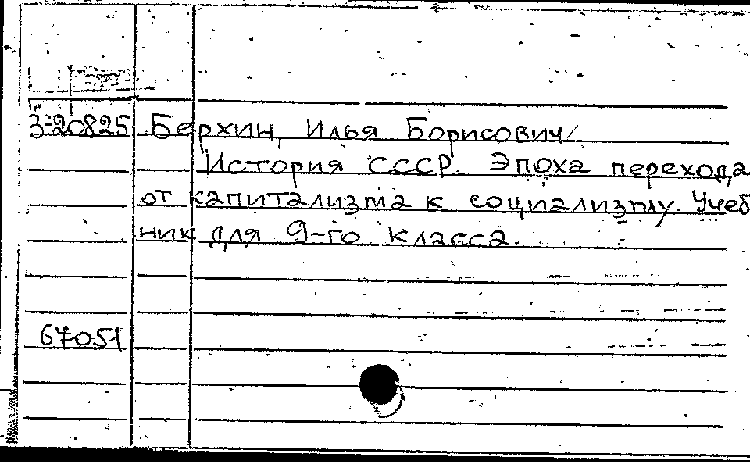 З-20825 Берхин, Илья Борисович/
История СССР. Эпоха перехода
от капитализма к социализму. Учеб
ник для 9-го класса.
67051